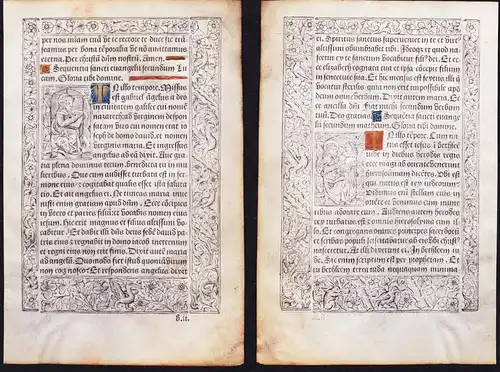 per nos
eterna. Per christū dn̄m nostrū. Amen.
Sequentia sancti euangelii secundum Lu
cam. Gloria tibi domine.
N illo tempore. Missus
est gabriel angelus a deo
in ciuitatem galilee cui nomē
nazareth ad virginem despon
satam viro cui nomen erat io
seph de domo dauid. et nomen
virginis maria. Et ingressus
angelus ad eā dixit. Aue gra
tia plena dominus tecum. Benedicta tu in mu
lieribus. Que cum audisset turbata est in ser
mone eius: et cogitabat qualis esset ista saluta
tio. Et ait angelus ei. Ne timeas maria inue
nisti enim gratiam apud dn̄m. Ecce concipies
in vtero et paries filium et vocabis nomen eius
iesum. Hic erit magnus et filius altissimi vo
cabitur. Et dabit illi dn̄s deus sedē dauid pa
tris eius et regnabit in domo iacob ineternum
et regni eius non erit finis. Dixit autē maria
ad angelū. Quomodo fiet istud quoniā virum
non cognosco? Et respondens angelus dixit
B.ii.
ei. Spiritus sanctus superueniet in te et virtus
altissimi obumbrabit tibi. Ideoqz et quod nasce
tur ex te sanctum vocabitur filius dei. Et ecce
elizabeth cognata tua et ipsa cōcepit filium
in senectute sua. Et hic mensis est sextus illi que
vocatur sterilis: quia non erit impossibile apud
deum omne verbum. Dixit autem maria. Ecce
ancilla dn̄i fiat michi secundum verbum
tuum. Deo gratias. Sequētia sancti euange
lii secundum matheum. Gloria tibi domine.
N illo tēpore. Cum natus
esset iesus ī bethleem
iude in diebus herodis regis
ecce magi ab oriente venerunt
hierosolymam dicētes. Vbi est
qui natus est rex iudeorum?
Vidimus enim stellam eius in
oriente et venimus cum mune
ribus adorare eum. Audiens autem herodes
rex turbatus est et omnis hierosolima cum illo.
Et congregans omnes principes sacerdotū et
scribas populi sciscitabatur ab eis vbi christus
nasceretur. At illi dixerunt ei. In bethleem iu
de. Sic enim scriptum est per prophetam. Et
tu bethleem terra iuda nequaquam minima es